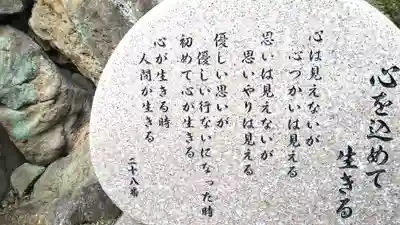 心を込めて
生きる
心は見えないが
心づかいは見える
思いは見えないが
思いやりは見える
優しい思いが
優しい行ないになった時
初めて心が生きる
心が生きる時
人間が生きる
二十八畨